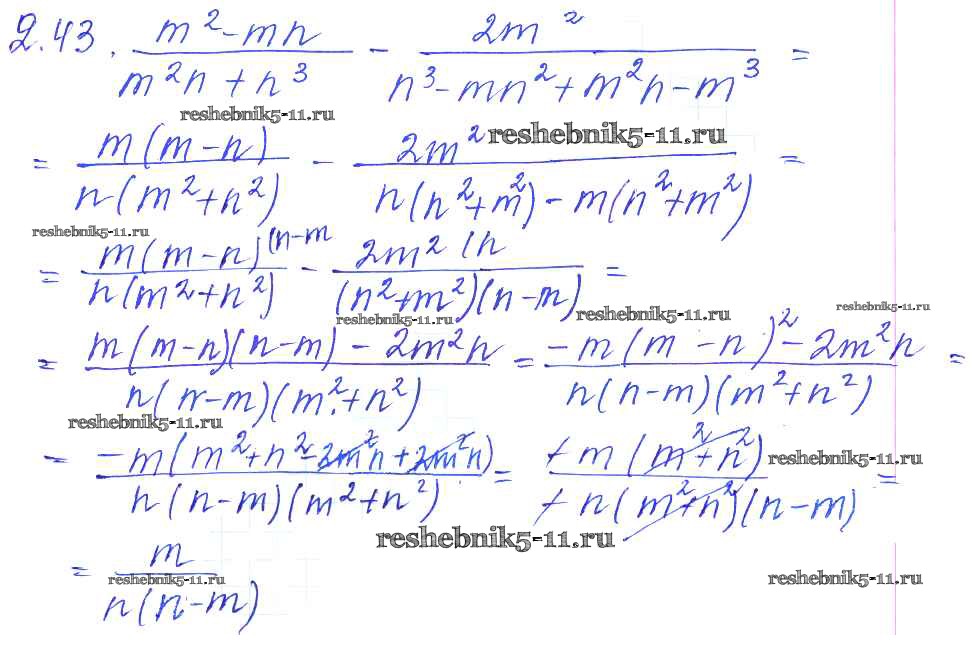 2.43. (m² - mn)/(m²n + n³) - 2m²/(n³ - mn² + m²n - m³) =
reshebnik5-11.ru
reshebnik5-11.ru
= m(m - n)/(n(m² + n²)) - 2m²/(n(n² + m²) - m(n² + m²)) =
reshebnik5-11.ru
= m(m - n)(n-m/(n(m² + n²)) - 2m²(n/((n² + m²)(n - m)) =
reshebnik5-11.ru
reshebnik5-11.ru
reshebnik5-11.ru
= (m(m - n)(n - m) - 2m²n)/(n(n - m)(m² + n²)) = (-m(m - n)² - 2m²n)/(n(n - m)(m² + n²)) =
reshebnik5-11.ru
= -m(m² + n² - 2m²n + 2m²n)/(n(n - m)(m² + n²)) = +m(m² + n²)/(+n(m² + n²)(n - m)) =
reshebnik5-11.ru
reshebnik5-11.ru
= m/(n(n - m))
reshebnik5-11.ru
reshebnik5-11.ru